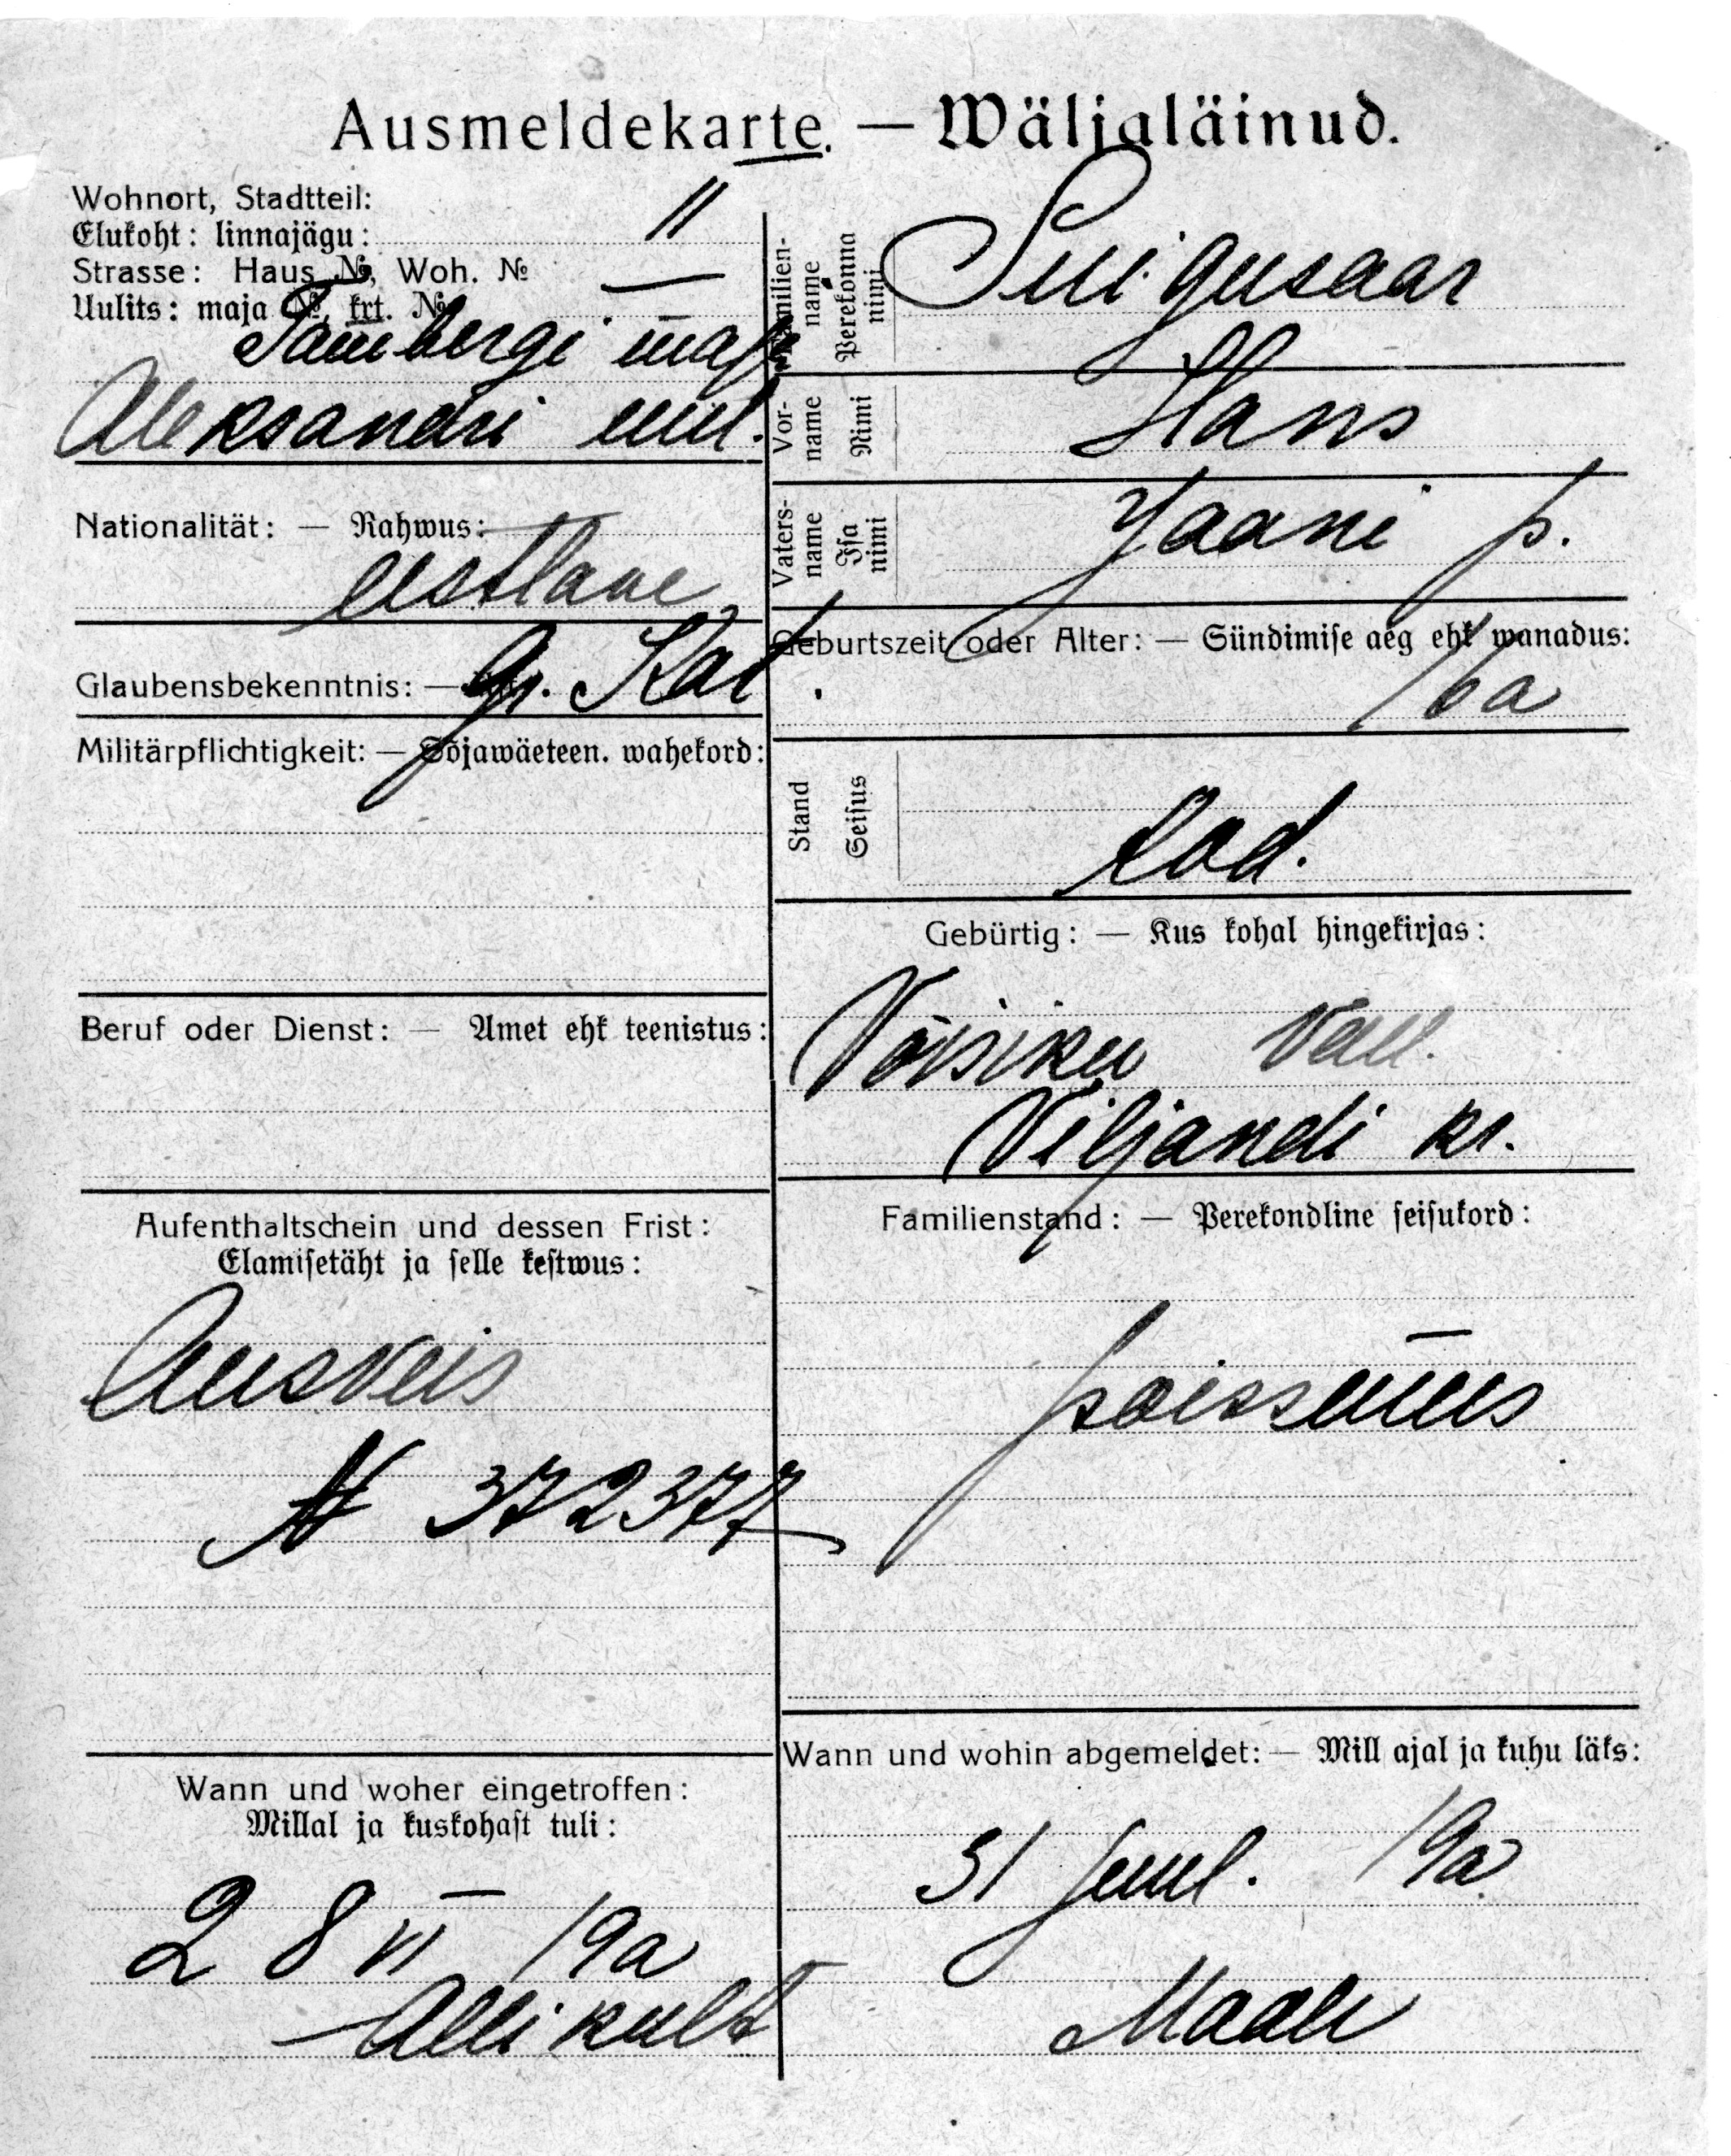 Ausmeldekarte. — Wäljaläinud.
Wohnort, Stadtteil:
Elukoht: linnajägu: II
Strasse: Haus №, Woh. №
Uulits: maja №, krt. №
Tambergi maja
Aleksandri uul.
Nationalität: — Rahwus:
eestlane
Glaubensbekenntnis: — Gr. Kat.
Militärpflichtigkeit: — Sõjawäeteen. wahekord:
Beruf oder Dienst: — Amet ehk teenistus:
Aufenthaltschein und dessen Frist:
Elamisetäht ja selle kestwus:
Ausveis
N 372377
Wann und woher eingetroffen:
Millal ja kuskohast tuli:
28 VI 19a
Allikult
Familien-name Perekonna nimi
Suigusaar
Vor-name Nimi
Hans
Vaters-name Isa nimi
Jaani p.
Geburtszeit oder Alter: — Sündimise aeg ehk wanadus:
16a
Stand Seisus
Gebürtig: — Kus kohal hingekirjas:
Võisiku vall.
Viljandi kr.
Familienstand: — Perekondline seisukord:
poissmees
Wann und wohin abgemeldet: — Mill ajal ja kuhu läks:
31 Juul. 19a
Maale